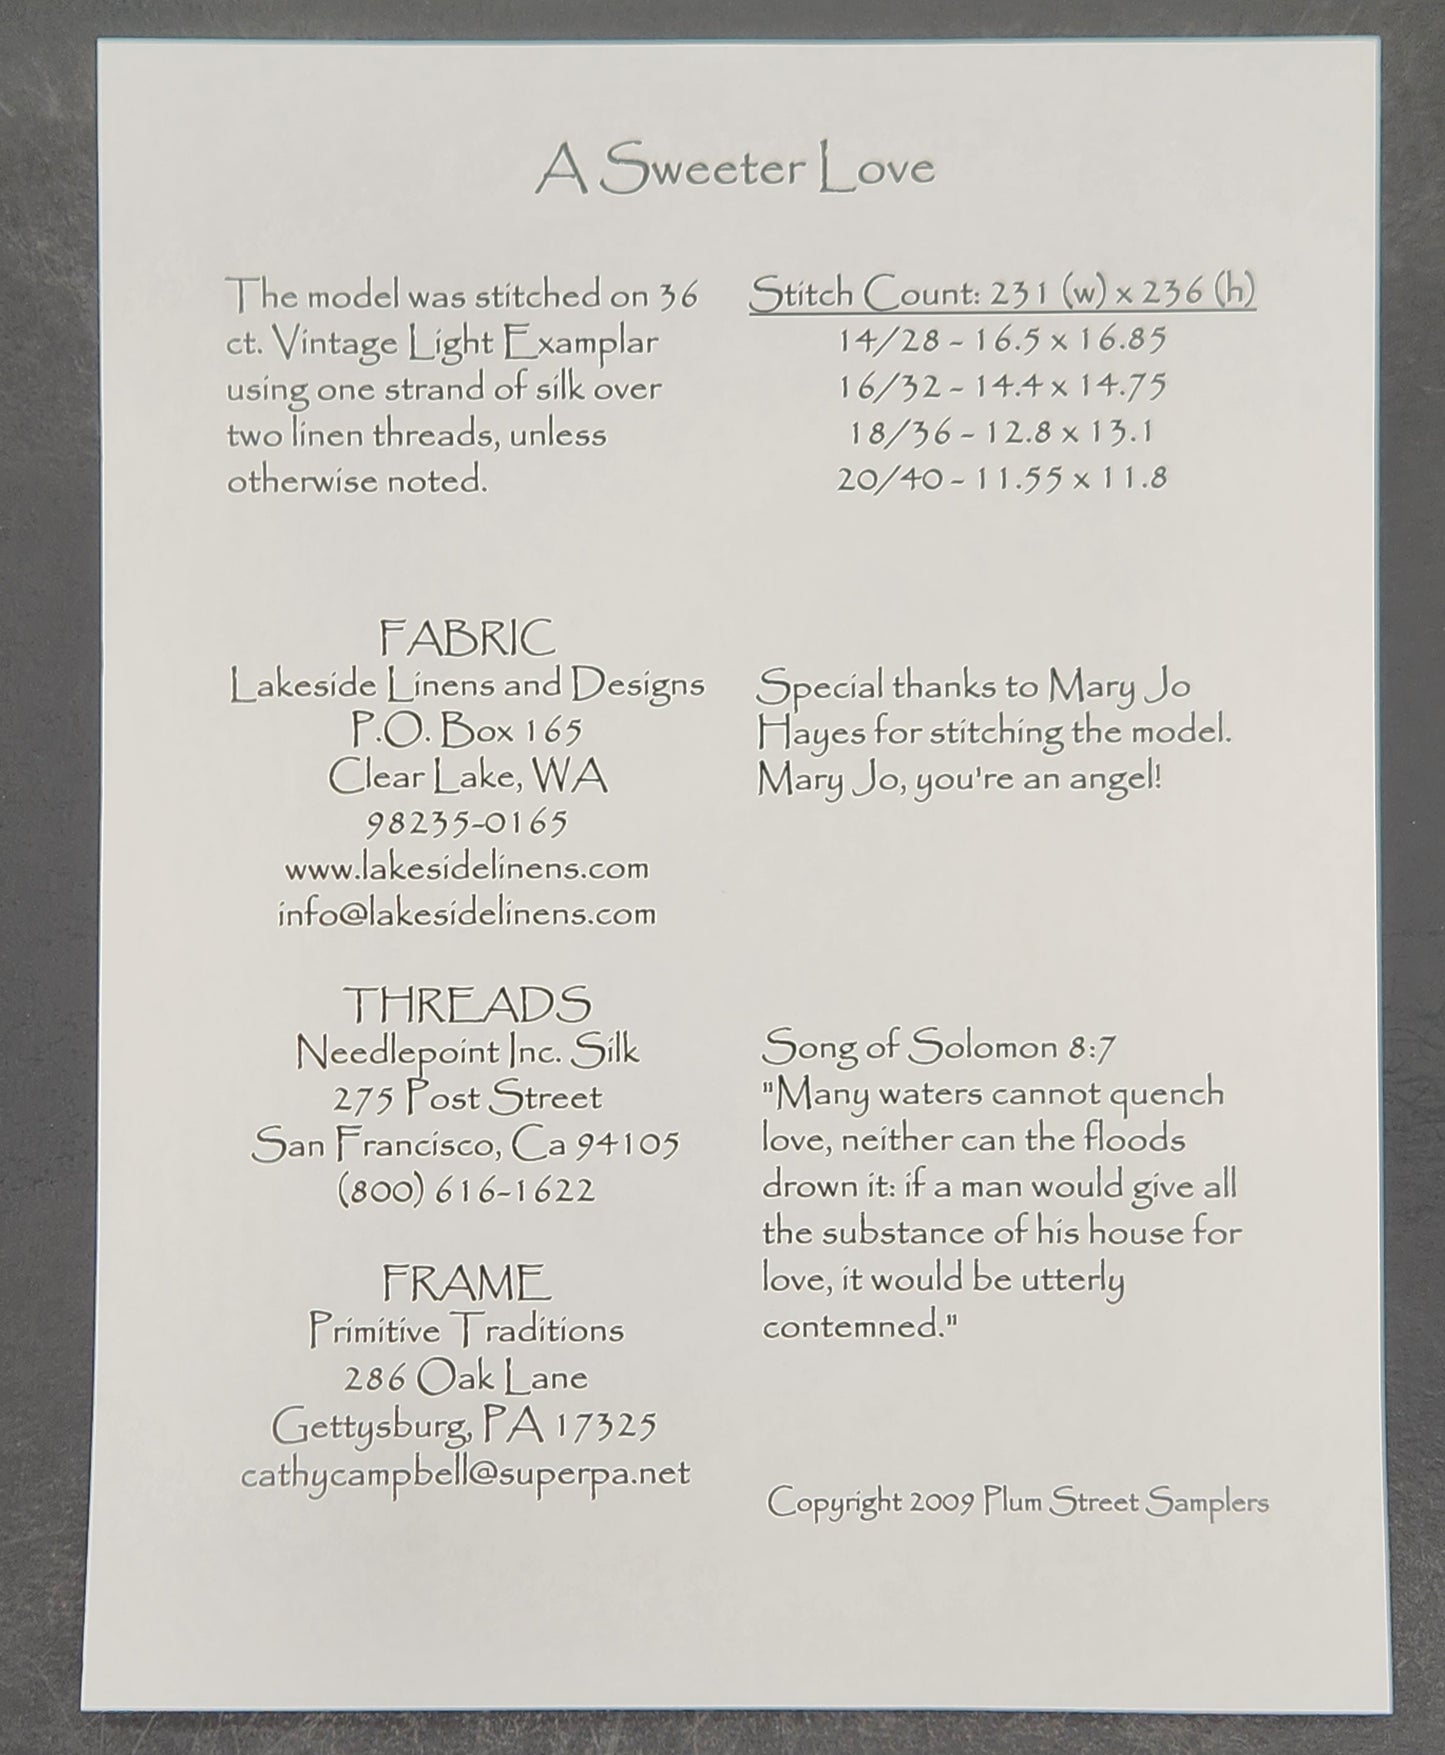 A Sweeter Love
The model was stitched on 36
ct. Vintage Light Examplar
using one strand of silk over
two linen threads, unless
otherwise noted.
Stitch Count: 231 (w) x 236 (h)
14/28 ~ 16.5 x 16.85
16/32 ~ 14.4 x 14.75
18/36 ~ 12.8 x 13.1
20/40 ~ 11.55 x 11.8
FABRIC
Lakeside Linens and Designs
P.O. Box 165
Clear Lake, WA
98235-0165
www.lakesidelinens.com
info@lakesidelinens.com
THREADS
Needlepoint Inc. Silk
275 Post Street
San Francisco, Ca 94105
(800) 616-1622
FRAME
Primitive Traditions
286 Oak Lane
Gettysburg, PA 17325
cathycampbell@superpa.net
Special thanks to Mary Jo
Hayes for stitching the model.
Mary Jo, you're an angel!
Song of Solomon 8:7
"Many waters cannot quench
love, neither can the floods
drown it: if a man would give all
the substance of his house for
love, it would be utterly
contemned."
Copyright 2009 Plum Street Samplers